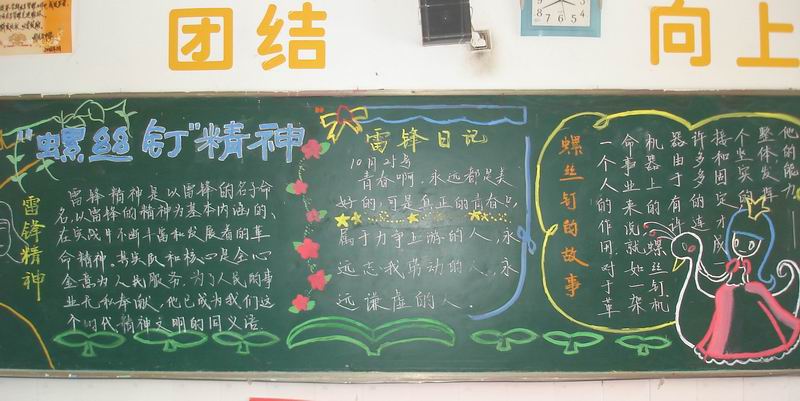 团结
向上
"螺丝钉"精神
雷锋精神
雷锋精神是以雷锋的名字命
名,以雷锋的精神为基本内涵的、
在实践中不断丰富和发展着的革
命精神。其实质和核心是全心
全意为人民服务,为了人民的事
业无私奉献,他已成为我们这
个时代精神文明的同义语.
雷锋日记
青春啊,永远都是美
好的,可是真正的青春只
属于力争上游的人,永
远忘我劳动的人,永
远谦虚的人.
螺丝钉的故事
一个人的作用,对于革
命事业来说就如一架
机器上的螺丝钉.机
器由于有许
许多多的连
接和固定才成一
个坚实的